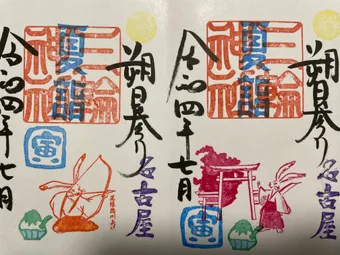 朔日参り
名古屋
三輪
神社
夏詣
寅
令和四年七月
朔日参り
名古屋
三輪
神社
夏詣
寅
令和四年七月